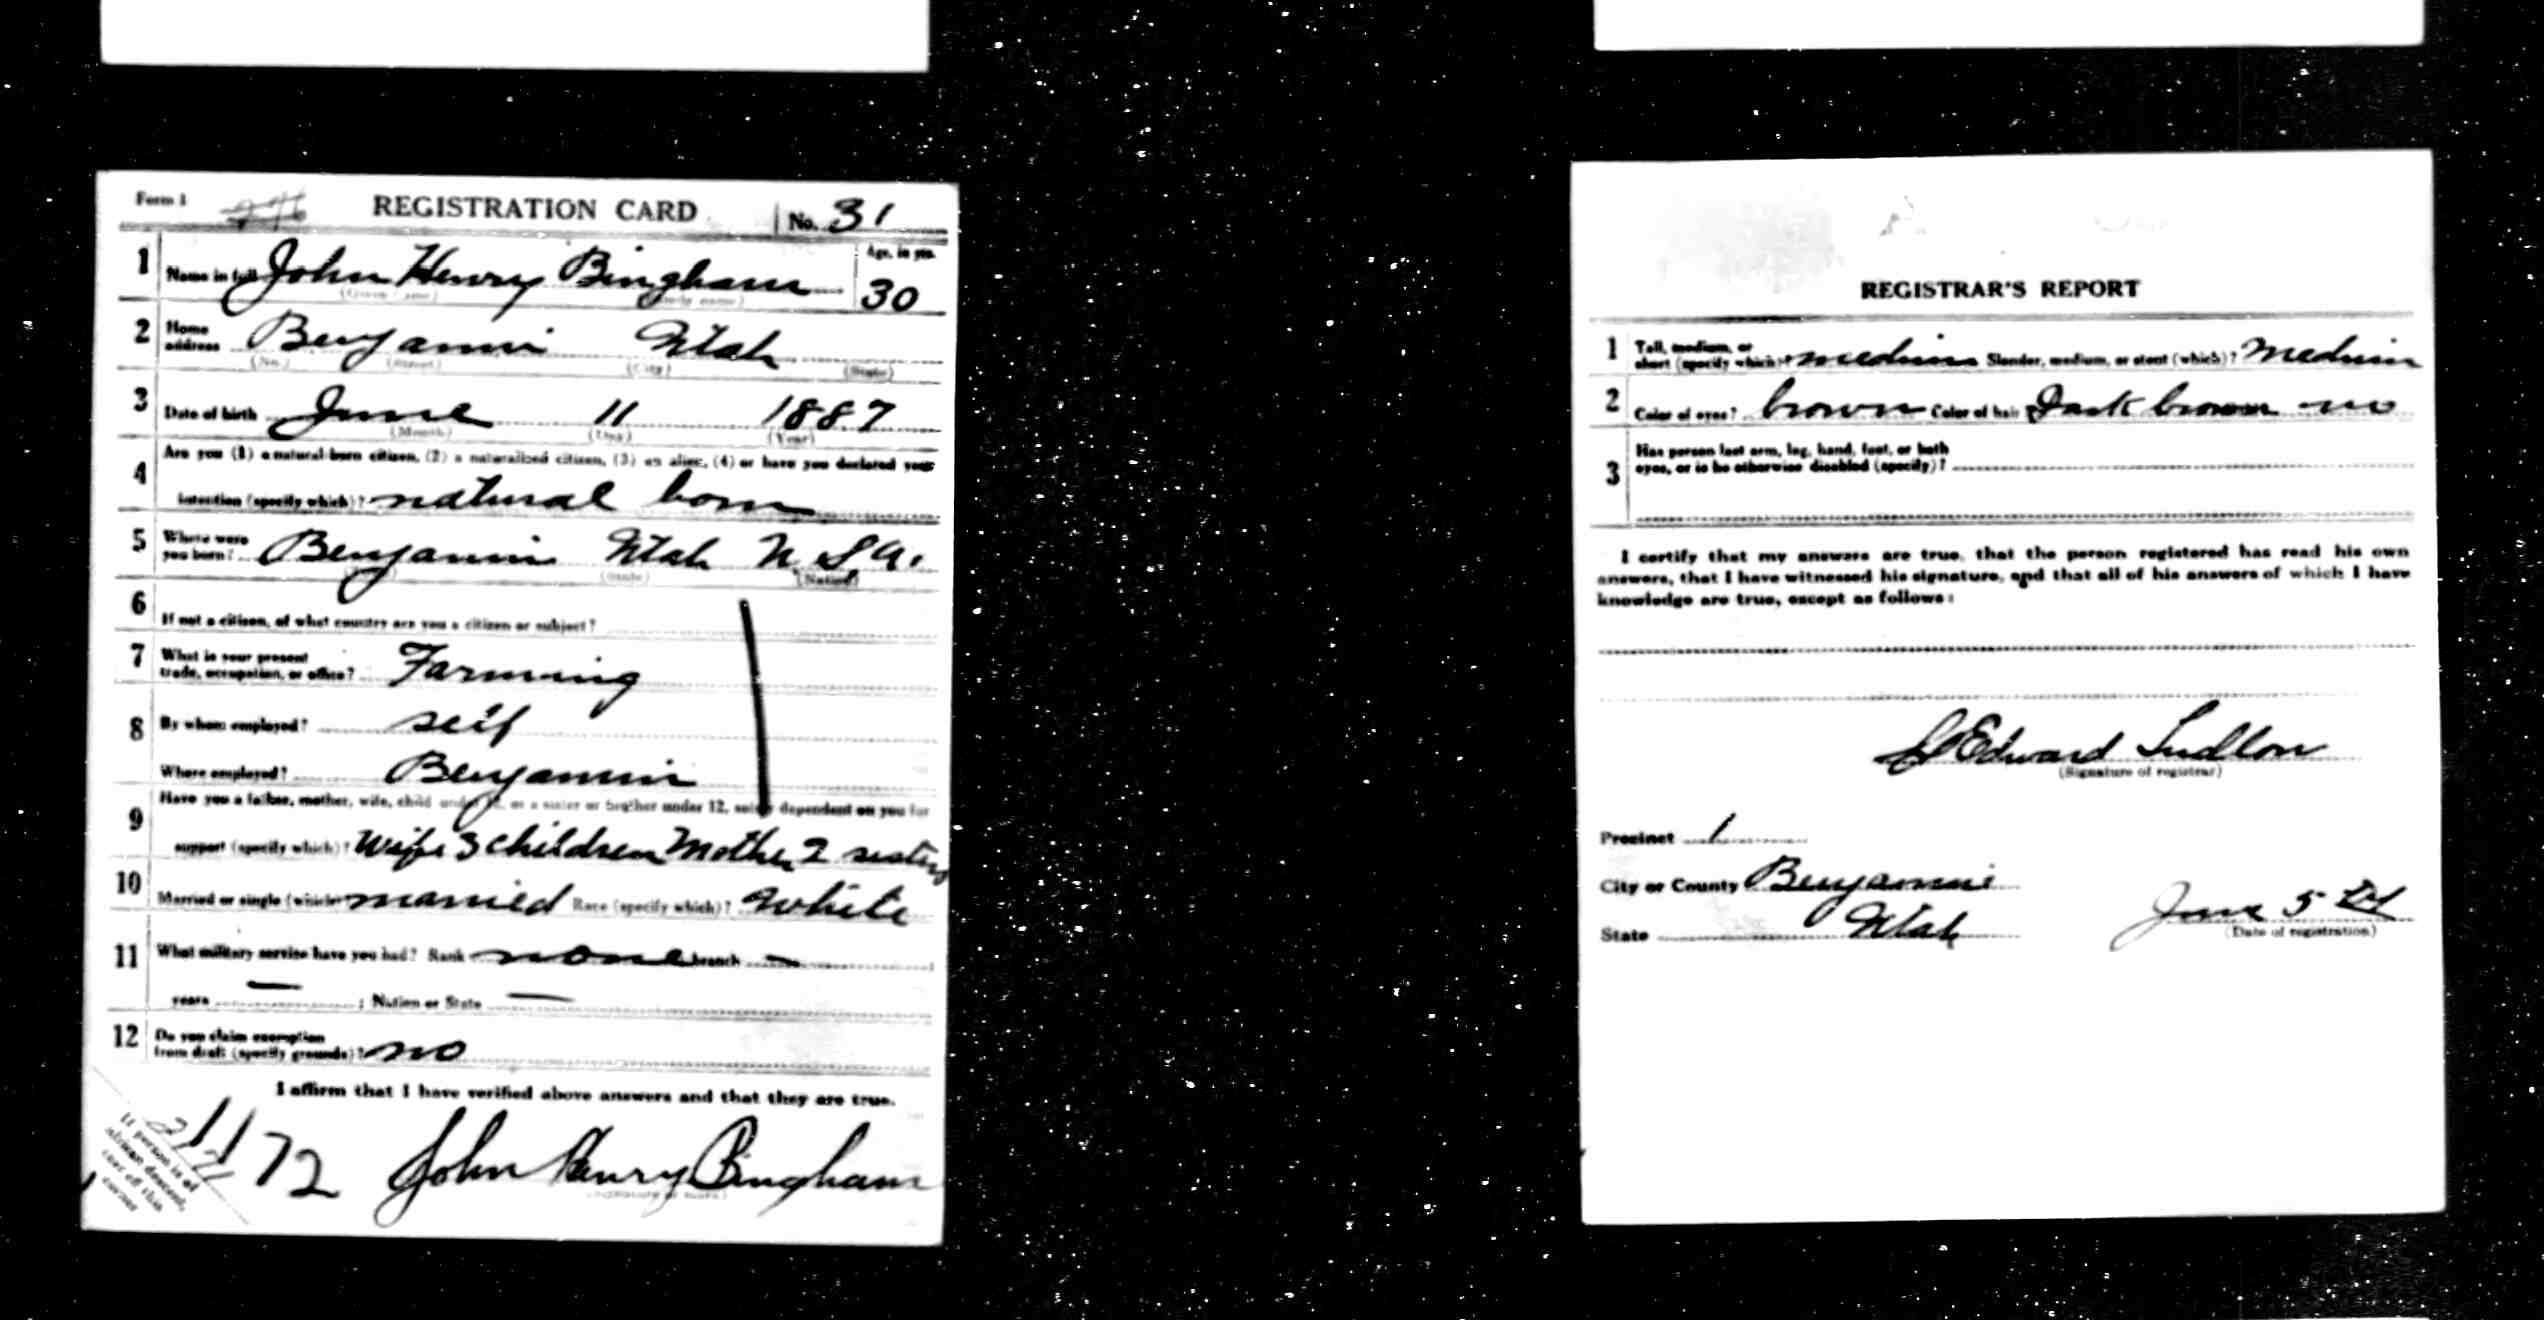 Form 1 REGISTRATION CARD No. 31
1 Name in full John Henry Bingham Age, in yrs. 30
(Given name) (Family name)
2 Home address Benjamin Utah
(No.) (Street) (City) (State)
3 Date of birth June 11 1887
(Month) (Day) (Year)
4 Are you (1) a natural-born citizen, (2) a naturalized citizen, (3) an alien, (4) or have you declared your
intention (specify which)? natural born
5 Where were you born? Benjamin Utah U.S.A.
(State) (Nation)
6 If not a citizen, of what country are you a citizen or subject?
7 What is your present trade, occupation, or office? Farming
8 By whom employed? self
Where employed? Benjamin
9 Have you a father, mother, wife, child under 12, or a sister or brother under 12, solely dependent on you for
support (specify which)? Wife 3 children Mother 2 sisters
10 Married or single (which)? married Race (specify which)? White
11 What military service have you had? Rank none branch —
years — ; Nation or State —
12 Do you claim exemption from draft (specify grounds)? no
I affirm that I have verified above answers and that they are true.
John Henry Bingham
If person is of
African descent,
tear off this
corner
72
REGISTRAR'S REPORT
1 Tall, medium, or short (specify which)? medium Slender, medium, or stout (which)? Medium
2 Color of eyes? brown Color of hair? Dark brown no
3 Has person lost arm, leg, hand, foot, or both
eyes, or is he otherwise disabled (specify)?
I certify that my answers are true, that the person registered has read his own
answers, that I have witnessed his signature, and that all of his answers of which I have
knowledge are true, except as follows:
Edward Ludlow
(Signature of registrar)
Precinct 1
City or County Benjamin
State Utah
June 5
(Date of registration)